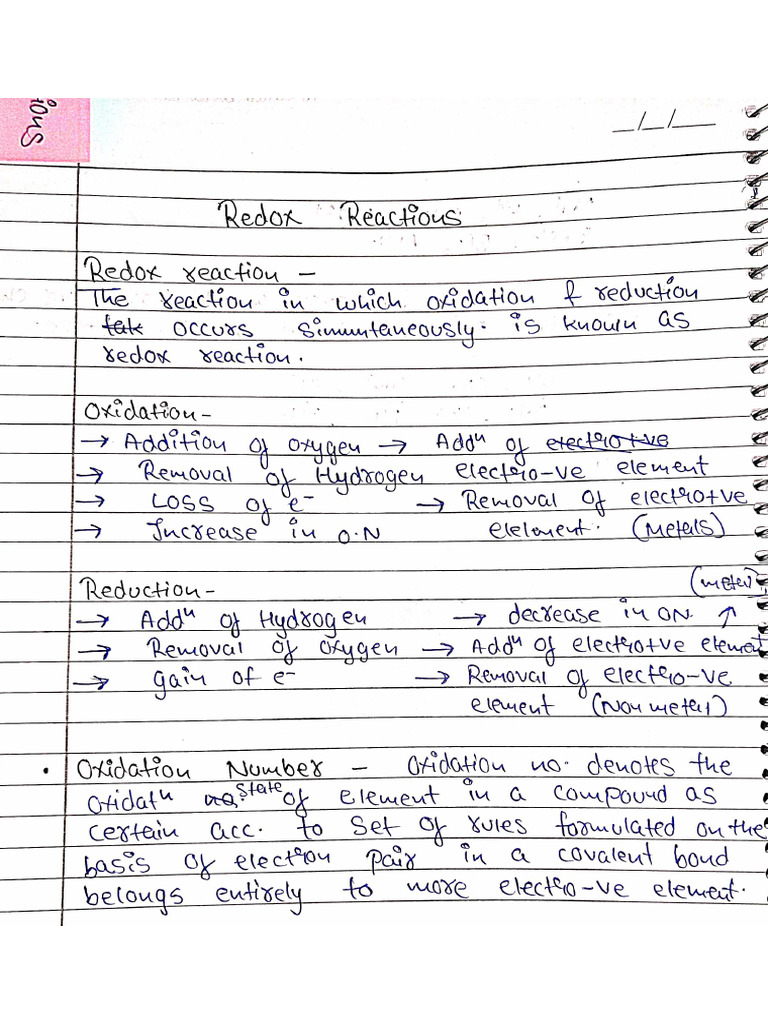 ions
_/_/__
Redox Reactions
Redox reaction -
The reaction in which oxidation & reduction
tak occurs simuntaneously. is known as
redox reaction.
Oxidation-
→ Addition of oxygen → Addn of electro+ve
→ Removal of Hydrogen electro-ve element
→ Loss of e- → Removal of electro+ve
→ Increase in O.N elelement. (Metals)
Reduction- (metal)
→ Addn of Hydrogen → decrease in ON. ↑
→ Removal of oxygen → Addn of electro+ve element
→ gain of e- → Removal of electro-ve
element (Non metal)
• Oxidation Number - Oxidation no. denotes the
oxidatn no. state of element in a compound as
certain acc. to set of rules formulated on the
basis of electron pair in a covalent bond
belongs entirely to more electro-ve element.